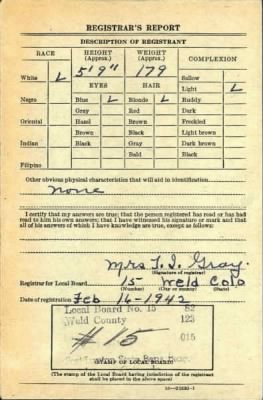 REGISTRAR'S REPORT
DESCRIPTION OF REGISTRANT
RACE HEIGHT (Approx.) WEIGHT (Approx.) COMPLEXION
White L 5'9" 179 Sallow
EYES HAIR Light L
Negro Blue L Blonde L Ruddy
Gray Red Dark
Oriental Hazel Brown Freckled
Brown Black Light brown
Indian Black Gray Dark brown
Bald Black
Filipino
Other obvious physical characteristics that will aid in identification
None
I certify that my answers are true; that the person registered has read or has had
read to him his own answers; that I have witnessed his signature or mark and that
all of his answers of which I have knowledge are true, except as follows:
Mrs T. I. Gray
(Signature of registrar)
Registrar for Local Board 15 Weld Colo
(Number) (City or county) (State)
Date of registration Feb 16-1942
Local Board No. 15 82
Weld County 123
#15 015
(STAMP OF LOCAL BOARD)
(The stamp of the Local Board having jurisdiction of the registrant
shall be placed in the above space)